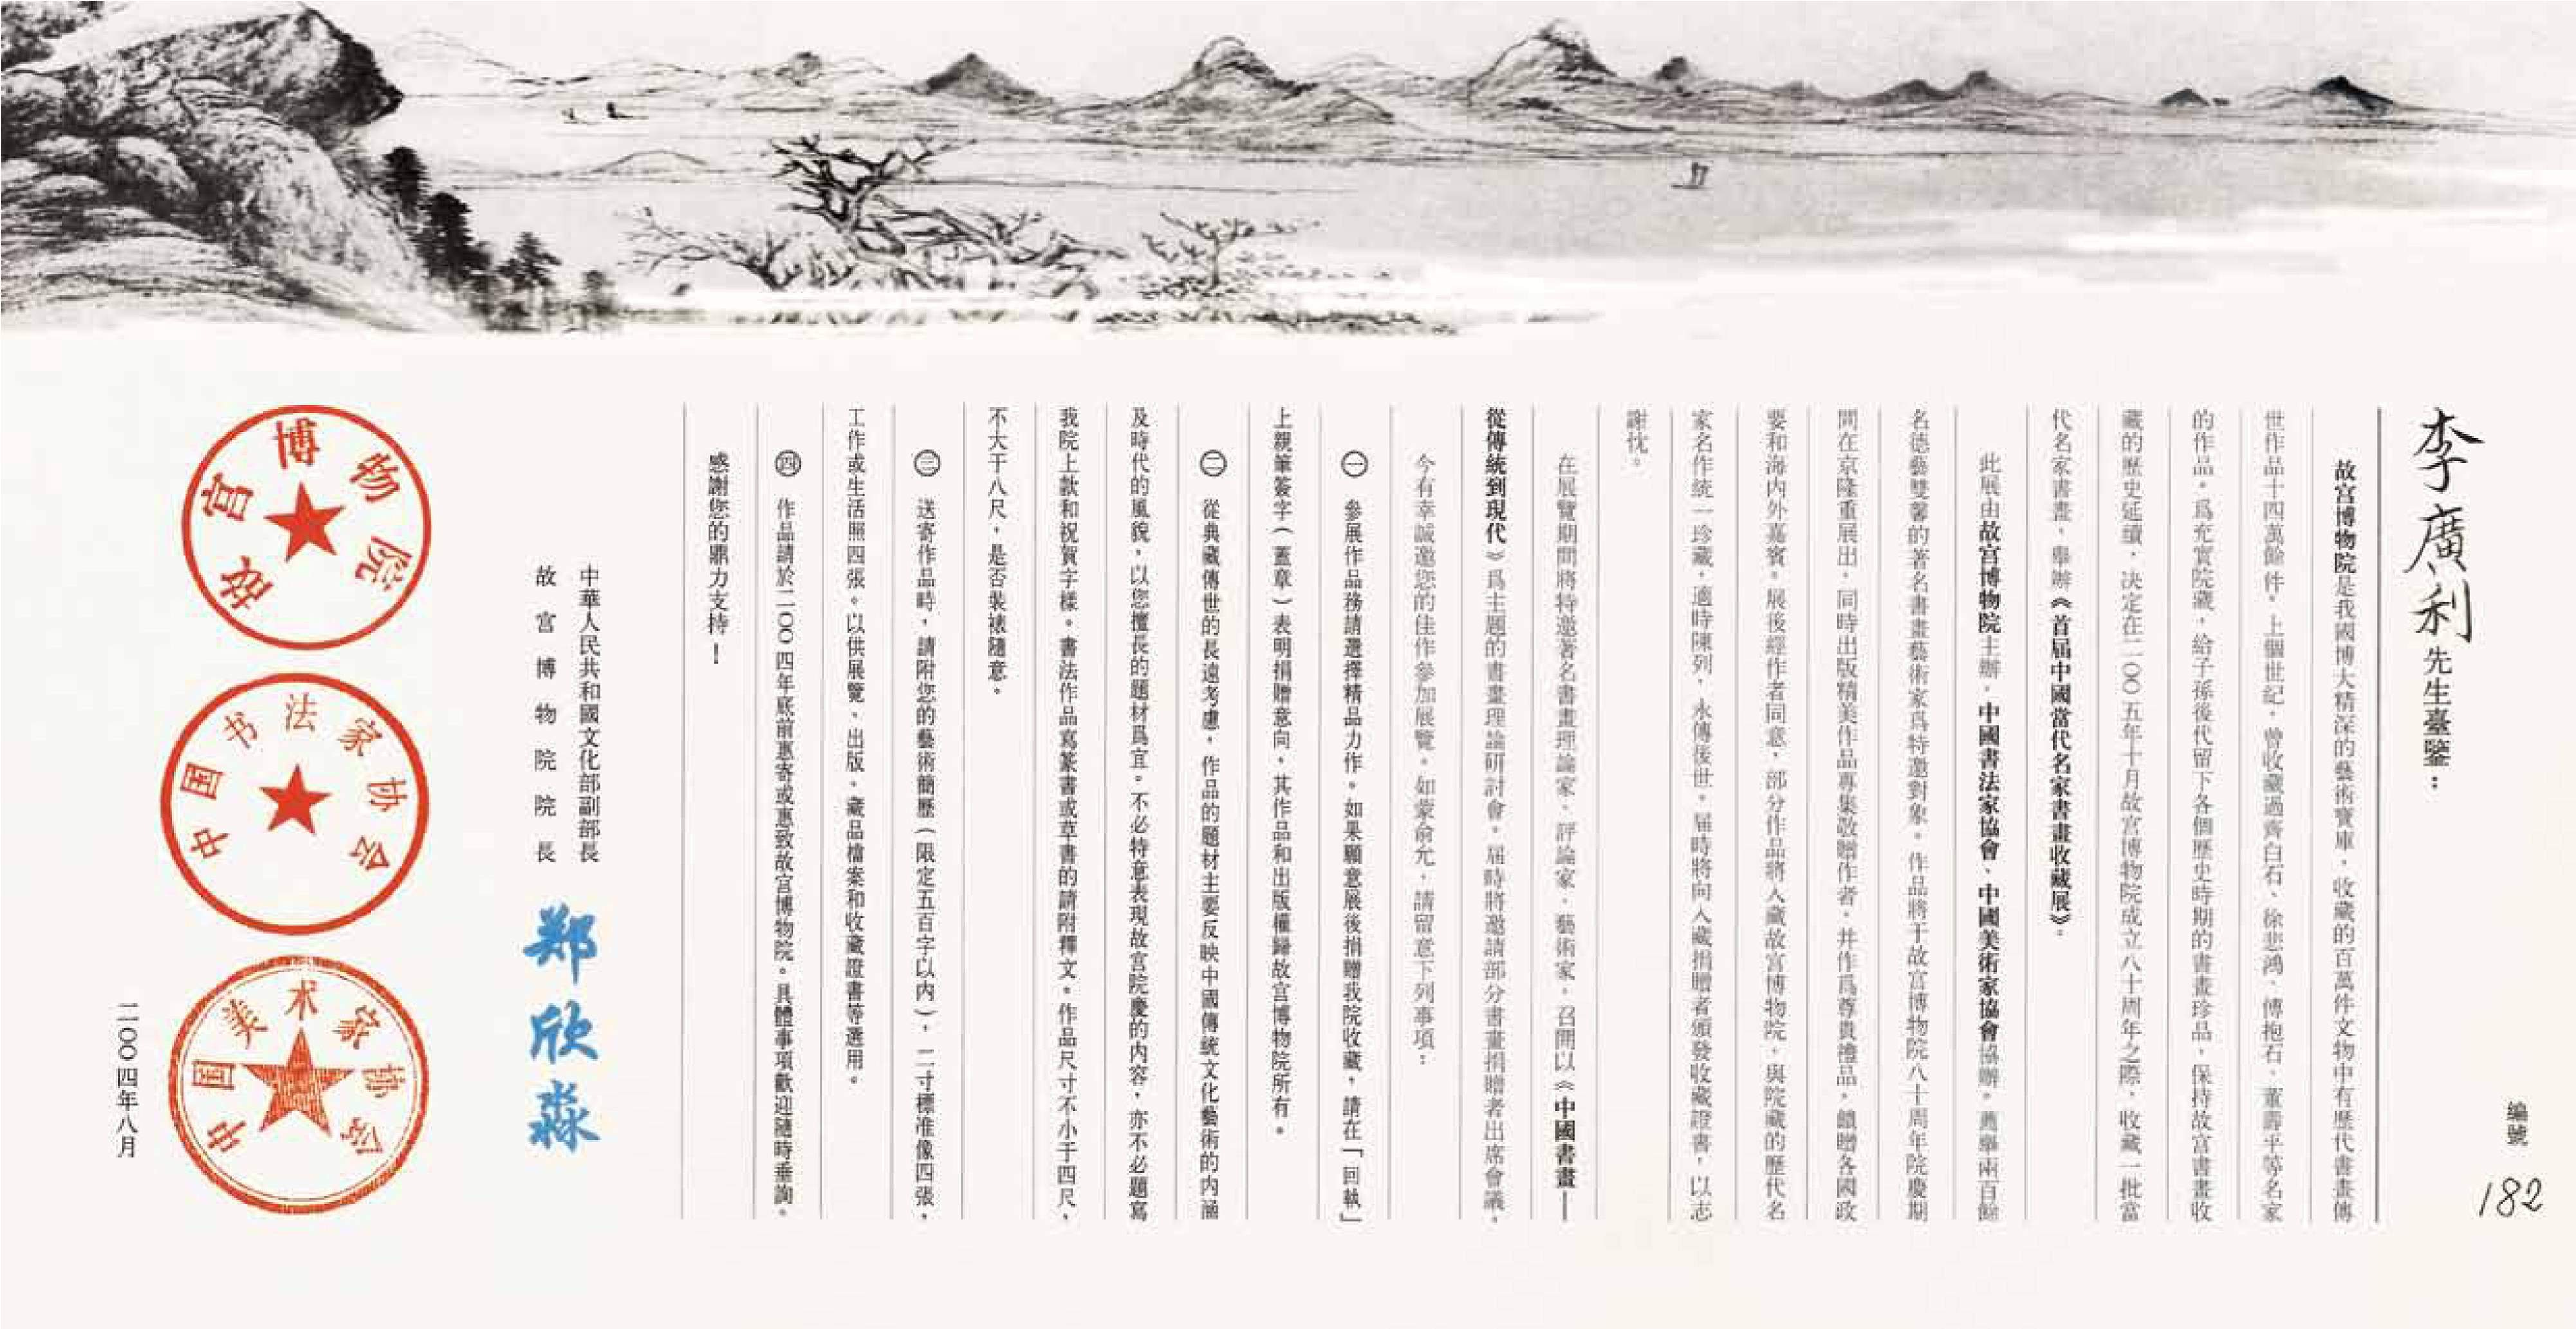 編號
182
李廣利先生臺鑒：
故宮博物院是我國博大精深的藝術寶庫，收藏的百萬件文物中有歷代書畫傳
世作品十四萬餘件。上個世紀，曾收藏過齊白石、徐悲鴻、傅抱石、董壽平等名家
的作品。爲充實院藏，給子孫後代留下各個歷史時期的書畫珍品，保持故宮書畫收
藏的歷史延續，决定在二○○五年十月故宮博物院成立八十周年之際，收藏一批當
代名家書畫，舉辦《首届中國當代名家書畫收藏展》。
此展由故宮博物院主辦，中國書法家協會、中國美術家協會協辦。薦舉兩百餘
名德藝雙馨的著名書畫藝術家爲特邀對象。作品將于故宮博物院八十周年院慶期
間在京隆重展出，同時出版精美作品專集敬贈作者，并作爲尊貴禮品，饋贈各國政
要和海内外嘉賓。展後經作者同意，部分作品將入藏故宮博物院，與院藏的歷代名
家名作統一珍藏，適時陳列，永傳後世。届時將向入藏捐贈者頒發收藏證書，以志
謝忱。
在展覽期間將特邀著名書畫理論家、評論家、藝術家，召開以《中國書畫——
從傳統到現代》爲主題的書畫理論研討會。届時將邀請部分書畫捐贈者出席會議。
今有幸誠邀您的佳作參加展覽。如蒙俞允，請留意下列事項：
㊀ 參展作品務請選擇精品力作。如果願意展後捐贈我院收藏，請在「回執」
上親筆簽字（蓋章）表明捐贈意向，其作品和出版權歸故宮博物院所有。
㊁ 從典藏傳世的長遠考慮，作品的題材主要反映中國傳統文化藝術的内涵
及時代的風貌，以您擅長的題材爲宜。不必特意表現故宮院慶的内容，亦不必題寫
我院上款和祝賀字樣。書法作品寫篆書或草書的請附釋文。作品尺寸不小于四尺，
不大于八尺，是否裝裱隨意。
㊂ 送寄作品時，請附您的藝術簡歷（限定五百字以内），二寸標准像四張，
工作或生活照四張。以供展覽、出版、藏品檔案和收藏證書等選用。
㊃ 作品請於二○○四年底前惠寄或惠致故宮博物院。具體事項歡迎隨時垂詢。
感謝您的鼎力支持！
中華人民共和國文化部副部長
故宮博物院院長
郑欣淼
故宫博物院
中国书法家协会
中国美术家协会
二○○四年八月